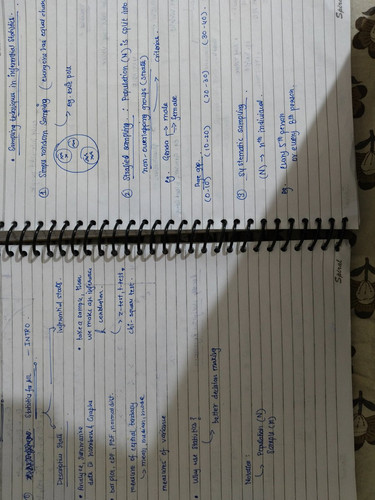 ① Statistics for ML - INTRO
Descriptive Stats Inferential Stats.
• Analyse, Summarise
data in Numbers & Graphs
• bar plots, PDF,
measure of central tendency
↳ mean, median, mode
measures of variance
• take a sample, then
we make an inference
& conclusion.
↳ z-test, t-test
chi-square test.
• Why use Statistics?
↳ better decision making
Notation:
↳ Population (N)
Sample (n)
Spiral
• Sampling techniques in Inferential Statistics.
① Simple random Sampling (everyone has equal chance)
↳ eg exit pole
② Stratified Sampling. Population (N) is split into
non-overlapping groups (strata)
↳ criteria
eg. Gender → male
→ female
(0-10) (10-20) (20-30) (30-40).
③ Systematic Sampling
(N) → nth individual.
eg Every 5th person
or every 6th person.
Spiral